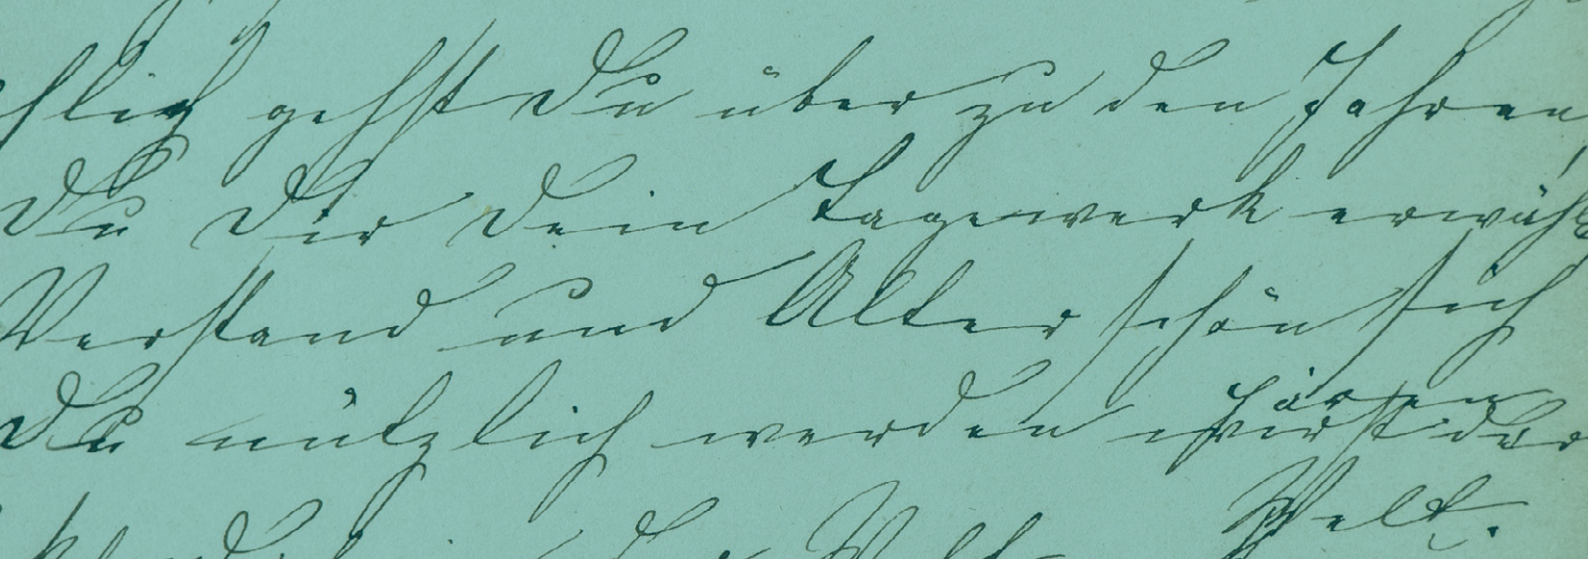 hlich gehst Du über zu den Jahren,
Du Dir Dein Tagewerk erwähl
Verstand und Alter schön sich
paaren
Du nützlich werden wirst der
Welt.